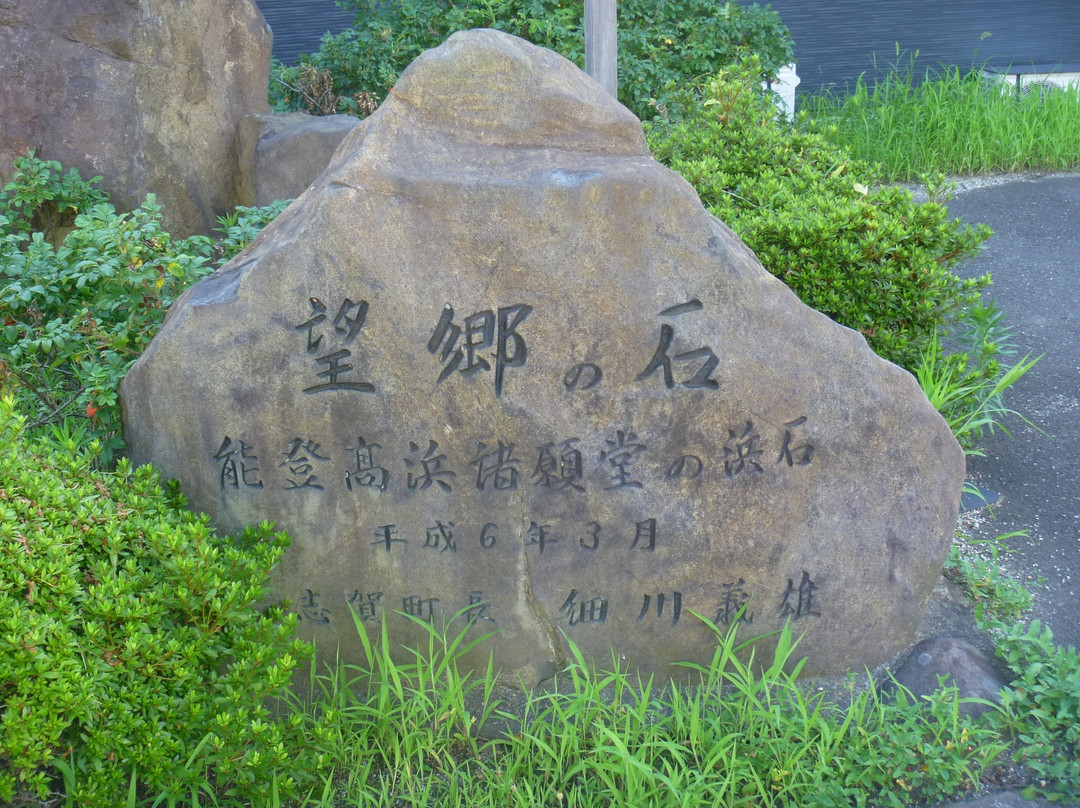 望郷の石
能登髙浜諸願堂の浜石
平成6年3月
志賀町長 細川義雄